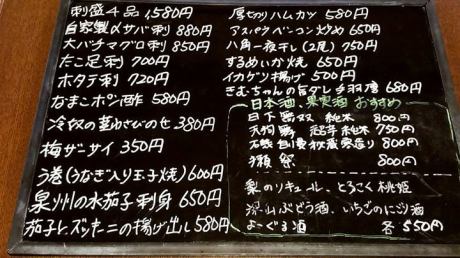 刺盛4品 1,580円
自家製〆サバ刺 880円
大バチマグロ刺 850円
たこ足刺 700円
ホタテ刺 720円
なまこポン酢 580円
冷奴の茎わさびのせ 380円
梅ザーサイ 350円
う巻(うなぎ入り玉子焼) 600円
泉州の水茄子刺身 650円
茄子とズッキーニの揚げ出し 580円
厚切りハムカツ 580円
アスパラベーコン炒め 650円
八角一夜干し(2尾) 750円
するめいか焼 650円
イカゲソ揚げ 500円
きむちゃんの旨ダレ手羽唐 680円
日本酒、果実酒 おすすめ
日下無双 純米 800円
天狗舞 純米 750円
秘蔵寒造り 800円
獺祭 800円
梨のリキュール、とろこく桃姫
深山ぶどう酒、いちごのにごり酒
よーぐる酒 各550円